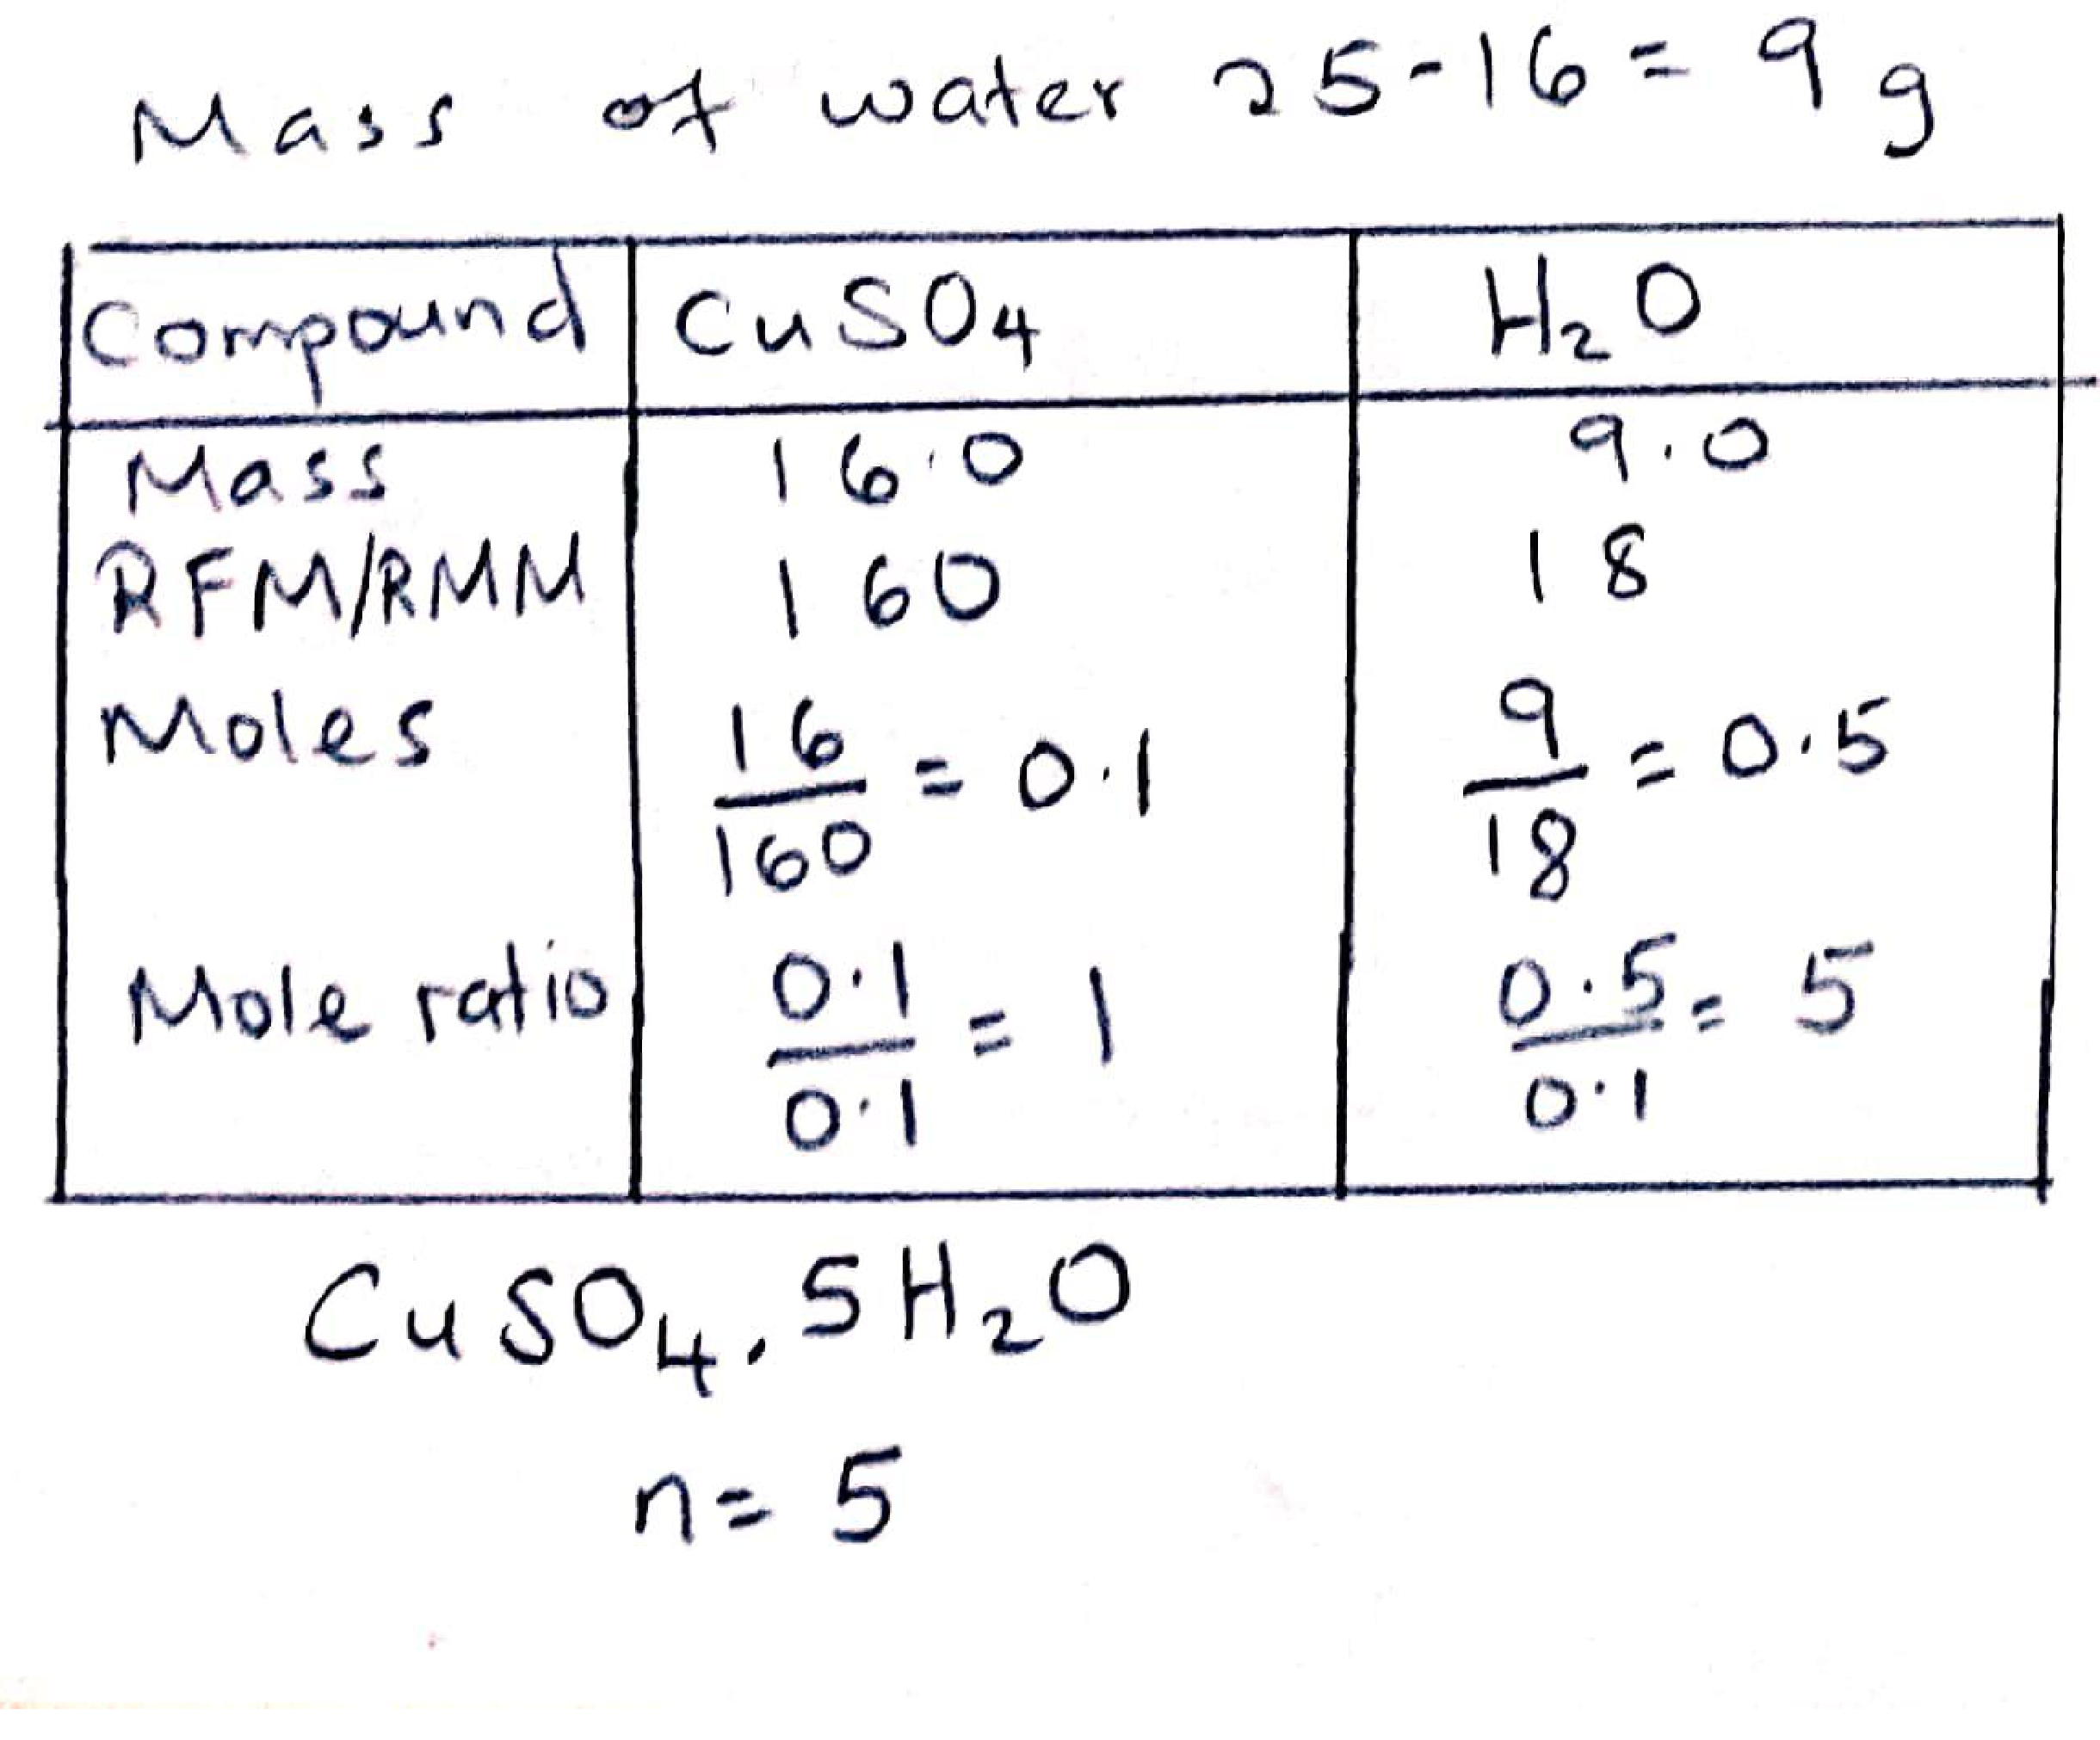 Mass of water 25-16 = 9 g
Compound CuSO4 H2O
Mass 16.0 9.0
RFM/RMM 160 18
Moles 16/160 = 0.1 9/18 = 0.5
Mole ratio 0.1/0.1 = 1 0.5/0.1 = 5
CuSO4.5H2O
n= 5